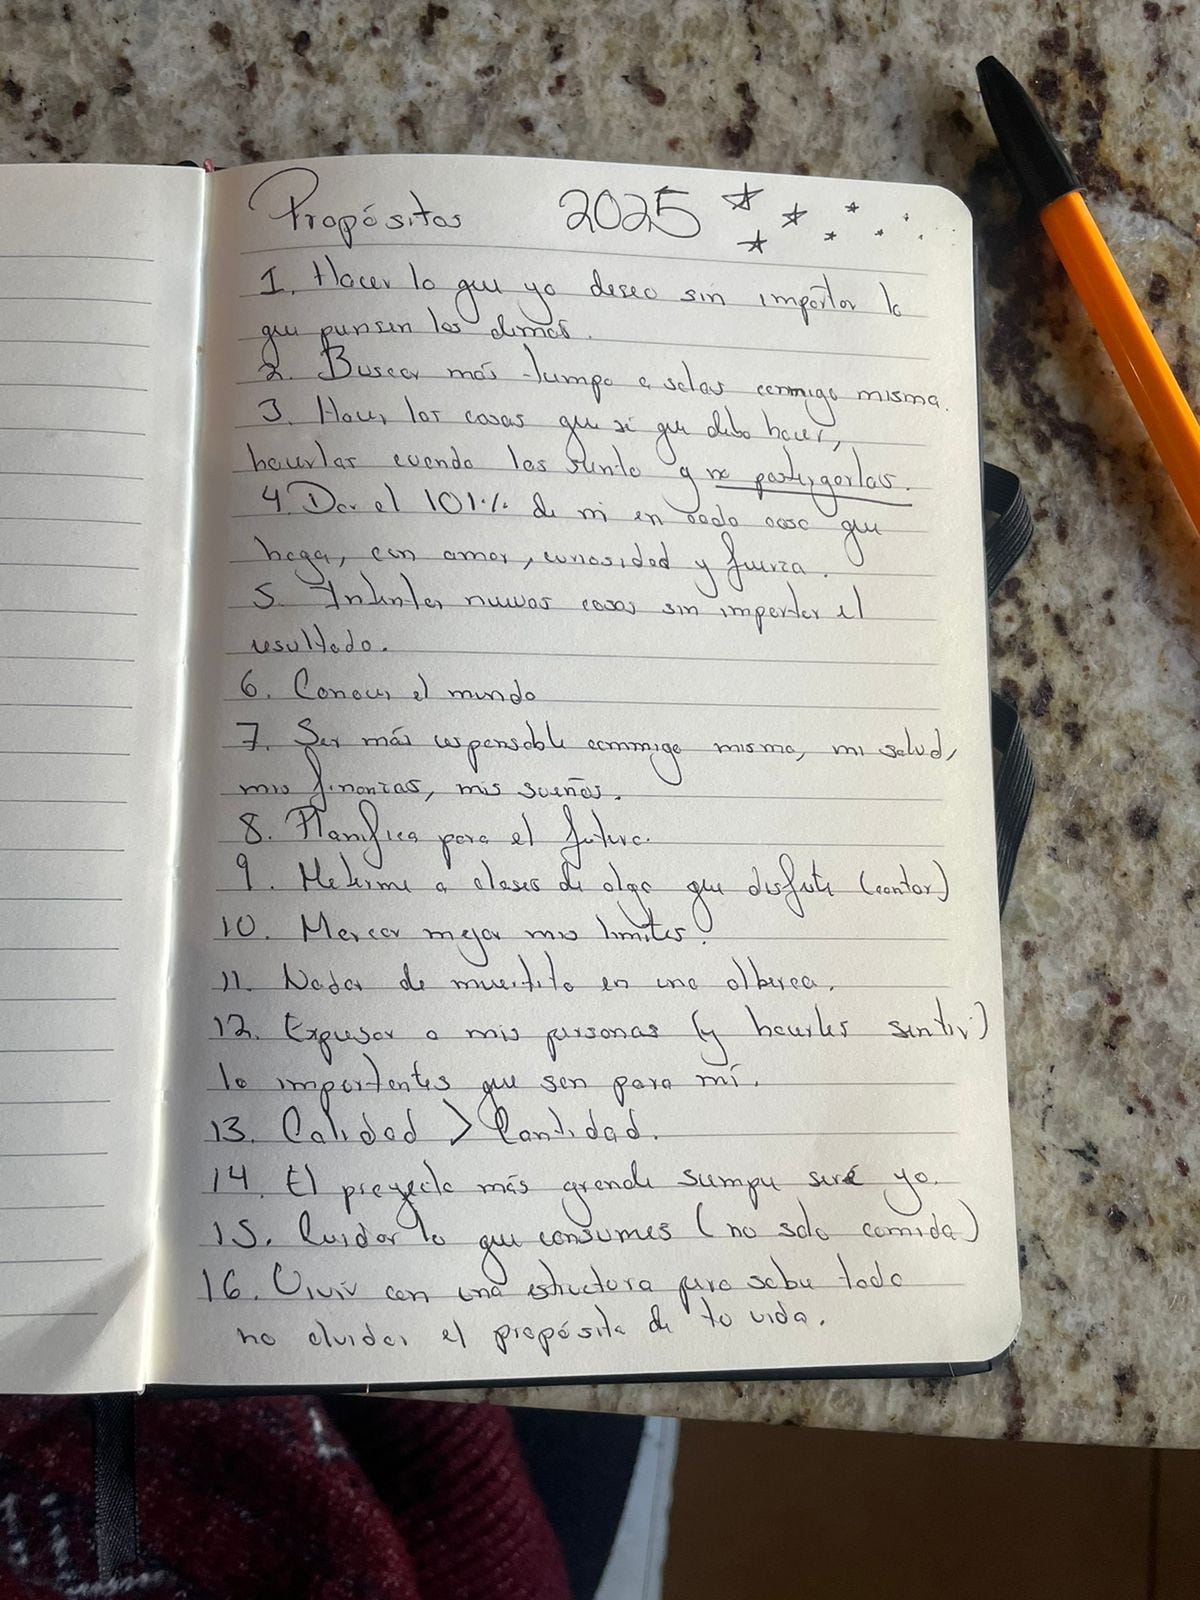 Propósitos 2025
1. Hacer lo que yo deseo sin importar lo
que piensen los demás.
2. Buscar más tiempo a solas conmigo misma.
3. Hacer las cosas que sé que debo hacer,
hacerlas cuando las siento y no postergarlas.
4. Dar el 101% de mi en cada cosa que
haga, con amor, curiosidad y fuerza.
5. Intentar nuevas cosas sin importar el
resultado.
6. Conocer el mundo
7. Ser más responsable conmmigo misma, mi salud,
mis finanzas, mis sueños.
8. Planifica para el futuro.
9. Meterme a clases de algo que disfrute (cantar)
10. Marcar mejor mis límites.
11. Nadar de muertito en una alberca.
12. Expresar a mis personas (y hacerles sentir)
lo importantes que son para mí.
13. Calidad > Cantidad.
14. El proyecto más grande siempre seré yo.
15. Cuidar lo que consumes (no solo comida)
16. Vivir con una estructura pero sobre todo
no olvidar el propósito de tu vida.